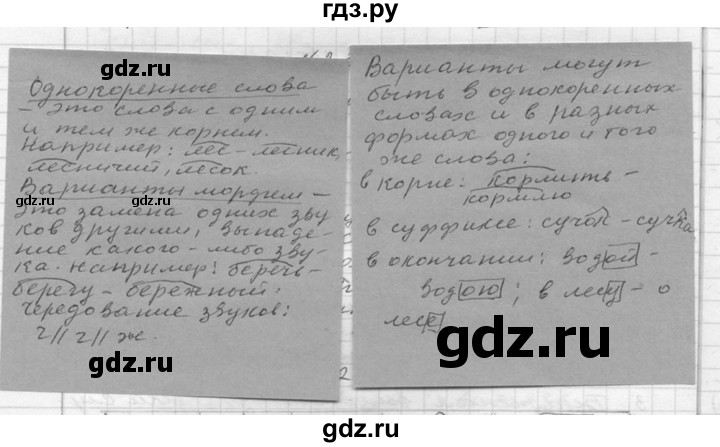 гдз.ру
Однокоренные слова
– это слова с одним
и тем же корнем.
Например: лес – лесник,
лесничий, лесок.
Варианты морфем –
это замена одних зву
ков другими, выпаде-
ние какого-либо зву-
ка. Например: беречь-
берегу – бережный.
Чередование звуков:
г // ч // ж.
Варианты могут
быть в однокоренных
словах и в разных
формах одного и того
же слова:
в корне: кормить –
кормлю
в суффиксе: сучок – сучка
в окончании: водой –
водою; в лесу – о
лесе
gdz.ru
gdz.ru
gdz.ru
gdz.ru
gdz.ru
gdz.ru
гдз.ру